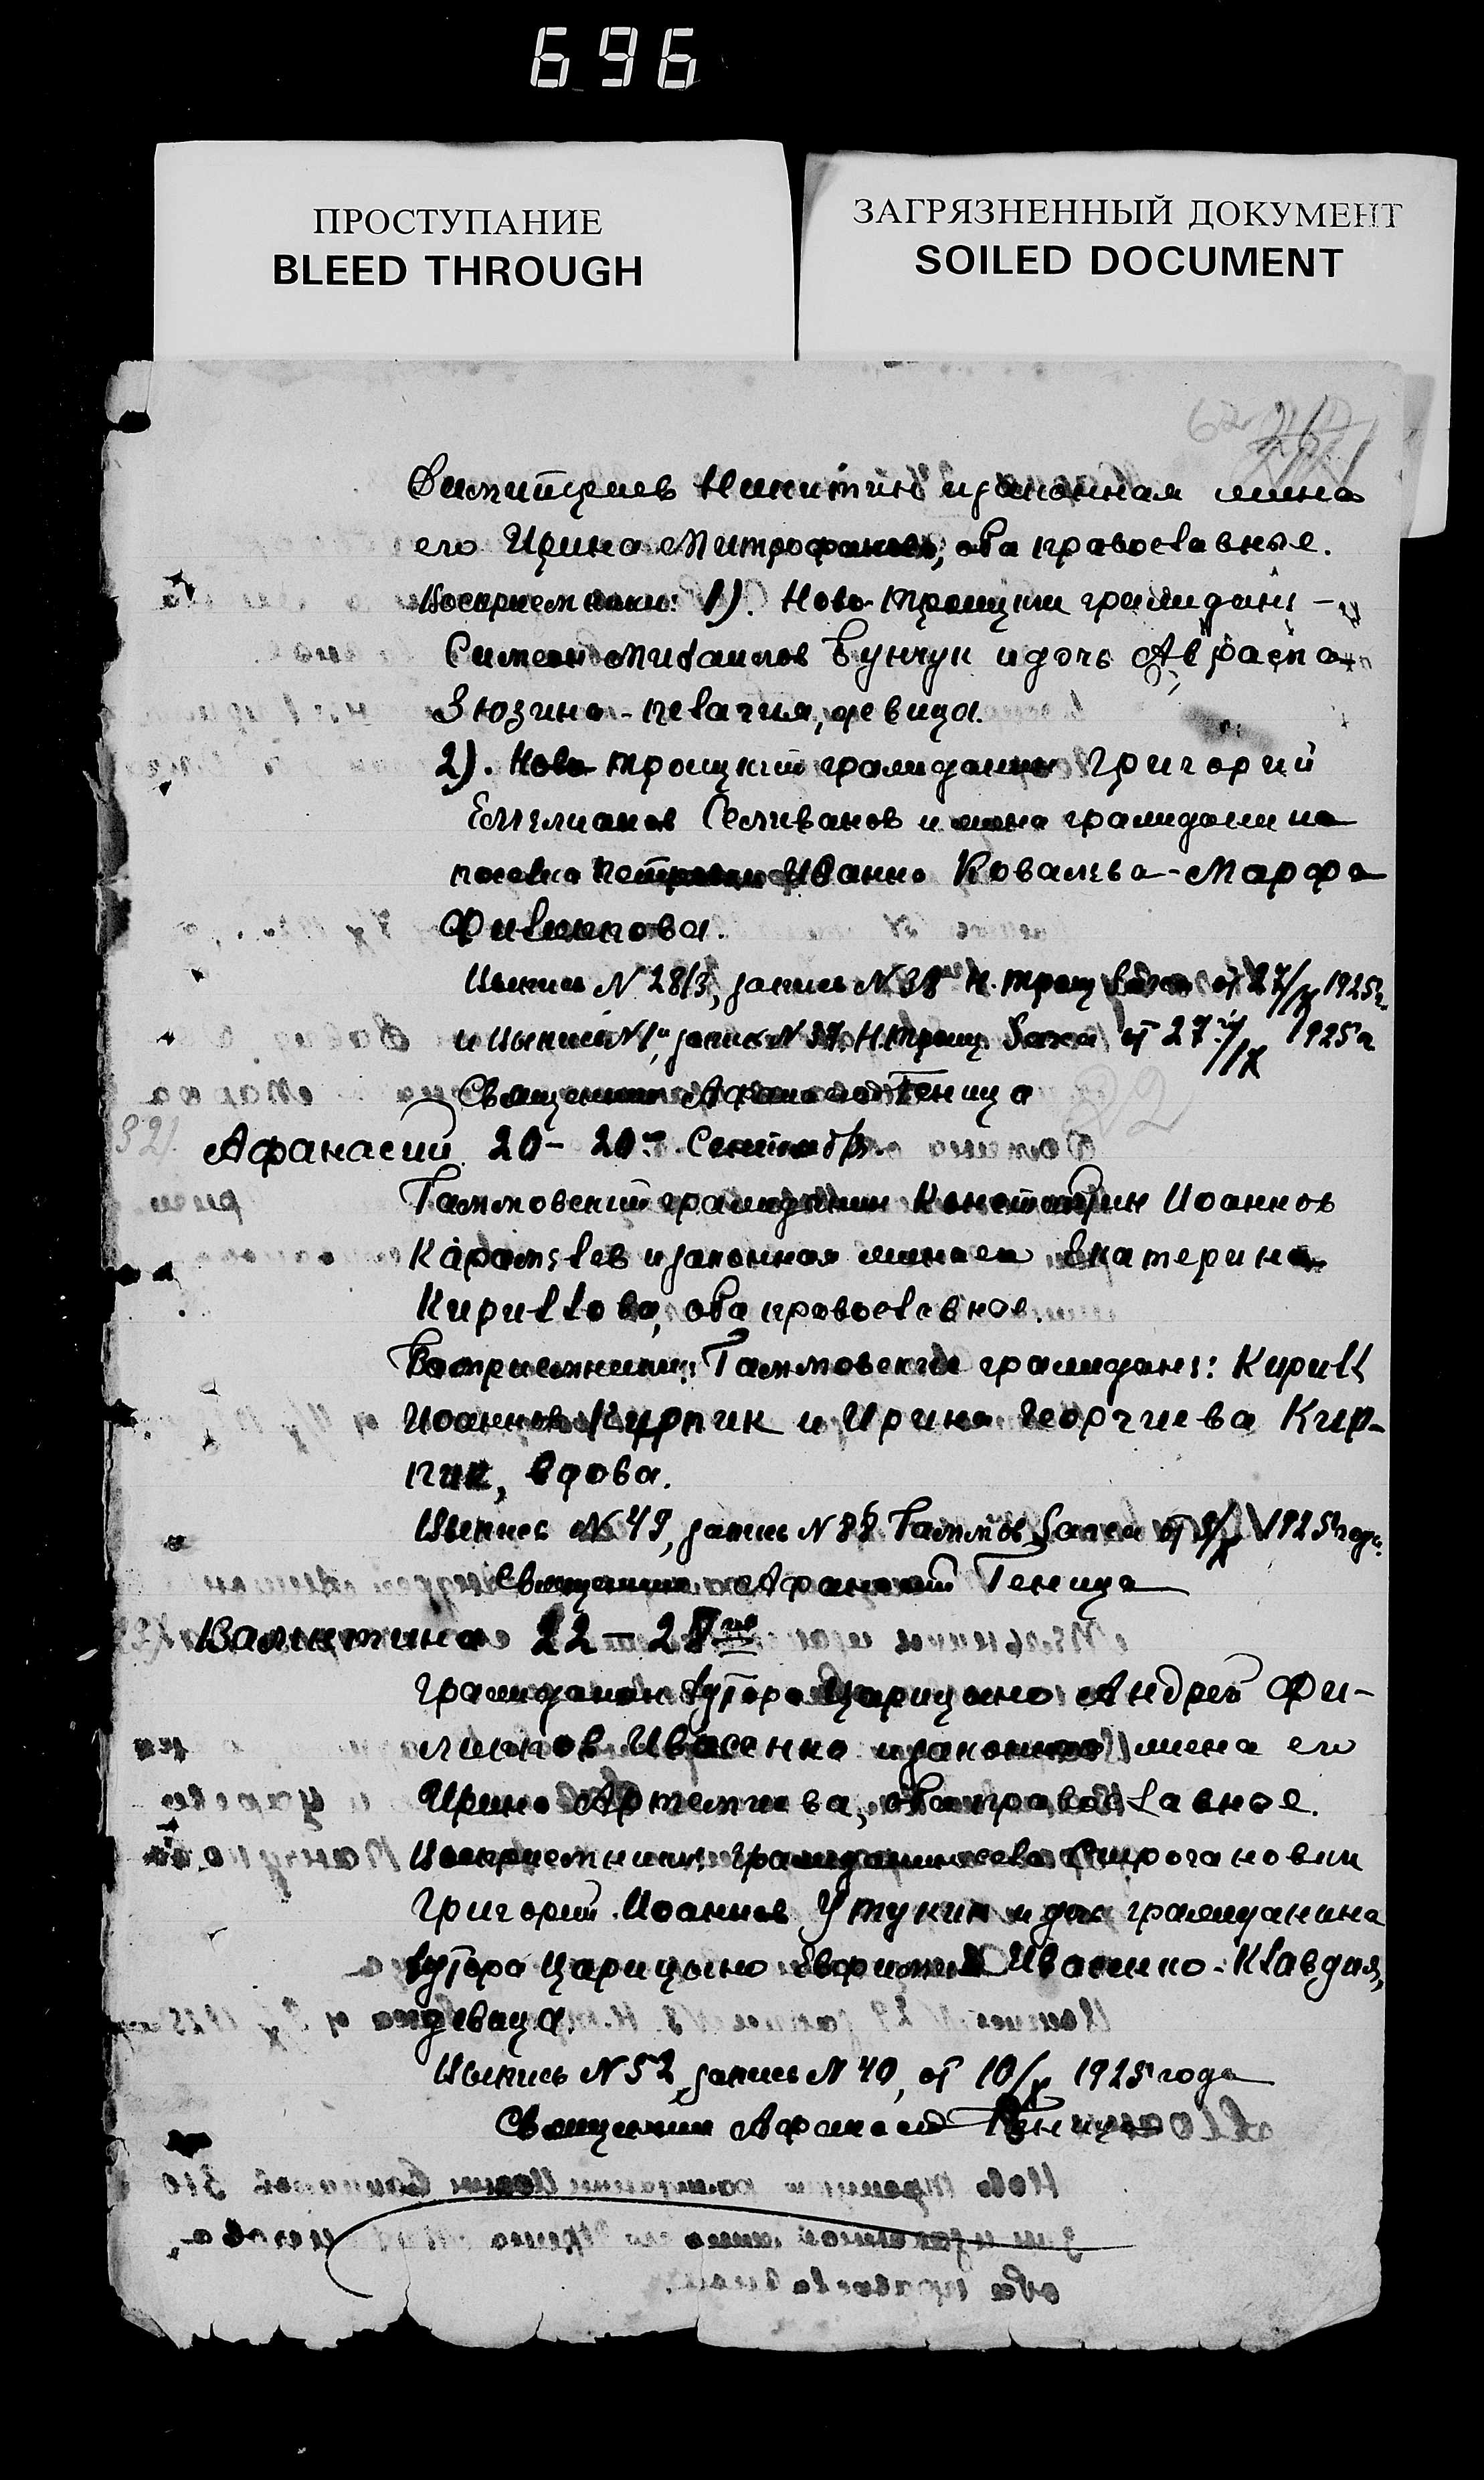 696
ПРОСТУПАНИЕ
BLEED THROUGH
ЗАГРЯЗНЕННЫЙ ДОКУМЕНТ
SOILED DOCUMENT
Никитин и законная жена
его Ирина Митрофанова, оба православные.
Восприемники: 1). Ново-Троицкие граждане –
Симеон Михаилов Бунчук и дочь
Зюзина - Пелагия, девица.
2). Ново Троицкий гражданин Григорий
Емелианов Селиванов и жена гражданина
поселка Петровки Иванна Ковалева - Марфа
Филиппова.
Выпись N 28/3, запись N 38 Н. Троиц Загса от 27/IX 1925 г.
и Выпись N 1, запись N 37. Н. Троиц Загса от 27/IX 1925 г
Священник Афанасий Теница
32). Афанасий 20 – 20го Сентября.
Таммовский гражданин Константин Иоаннов
Карамелев и законная жена его Екатерина
Кириллова, оба православные.
Восприемники: Таммовские граждане: Кирилл
Иоаннов Кирпик и Ирина Георгиева Кир-
пик, вдова.
Выпись N 49, запись N 88 Таммов Загса от 9/X 1925 года.
Священник Афанасий Теница
Валентина 22 – 28го
Гражданин хутора Царицыно Андрей Фи-
липпов Ивасенко и законная жена его
Ирина Артемиева, оба православные.
Восприемники: гражданин села Строгановки
Григорий Иоаннов Утукин и дочь гражданина
хутора Царицыно Евфимия Ивасенко - Клавдия,
девица.
Выпись N 52, запись N 40, от 10/X 1925 года
Священник Афанасий Теница